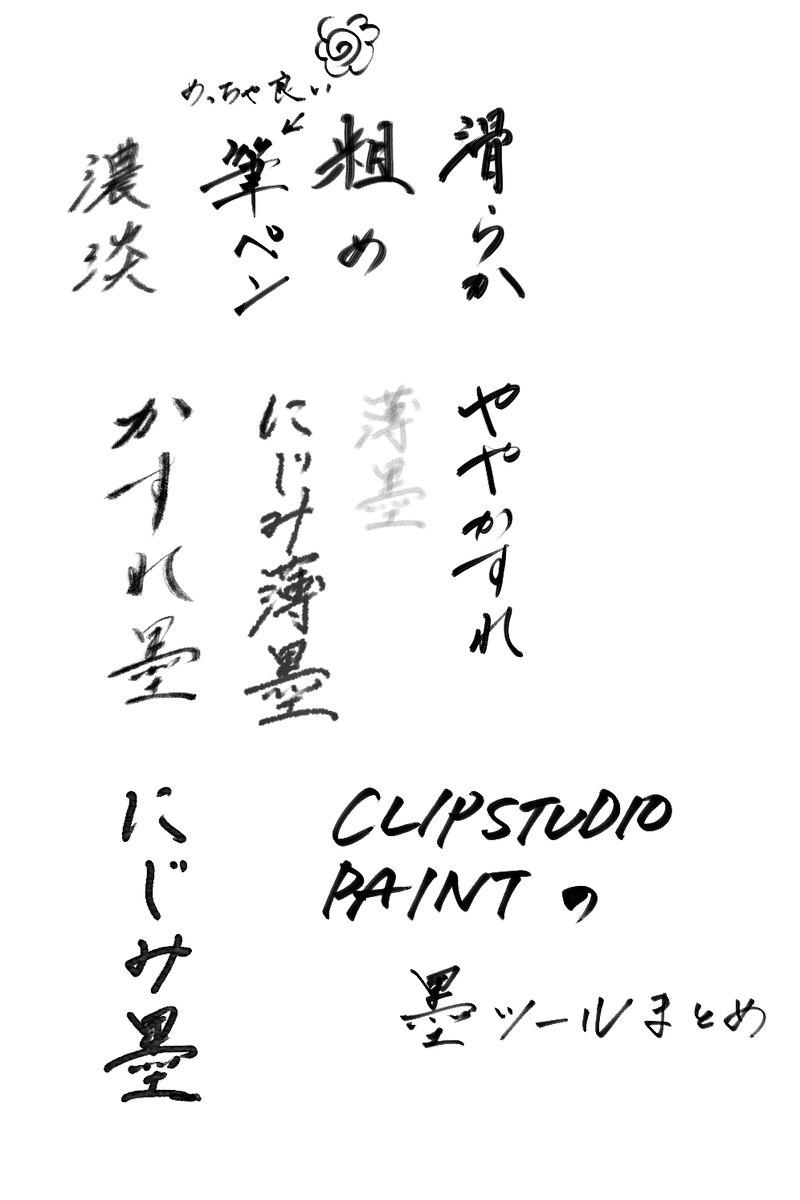 滑らか
粗め
めっちゃ良い
筆ペン
濃淡
ややかすれ
薄墨
にじみ薄墨
かすれ墨
にじみ墨
CLIPSTUDIO
PAINTの
墨ツールまとめ